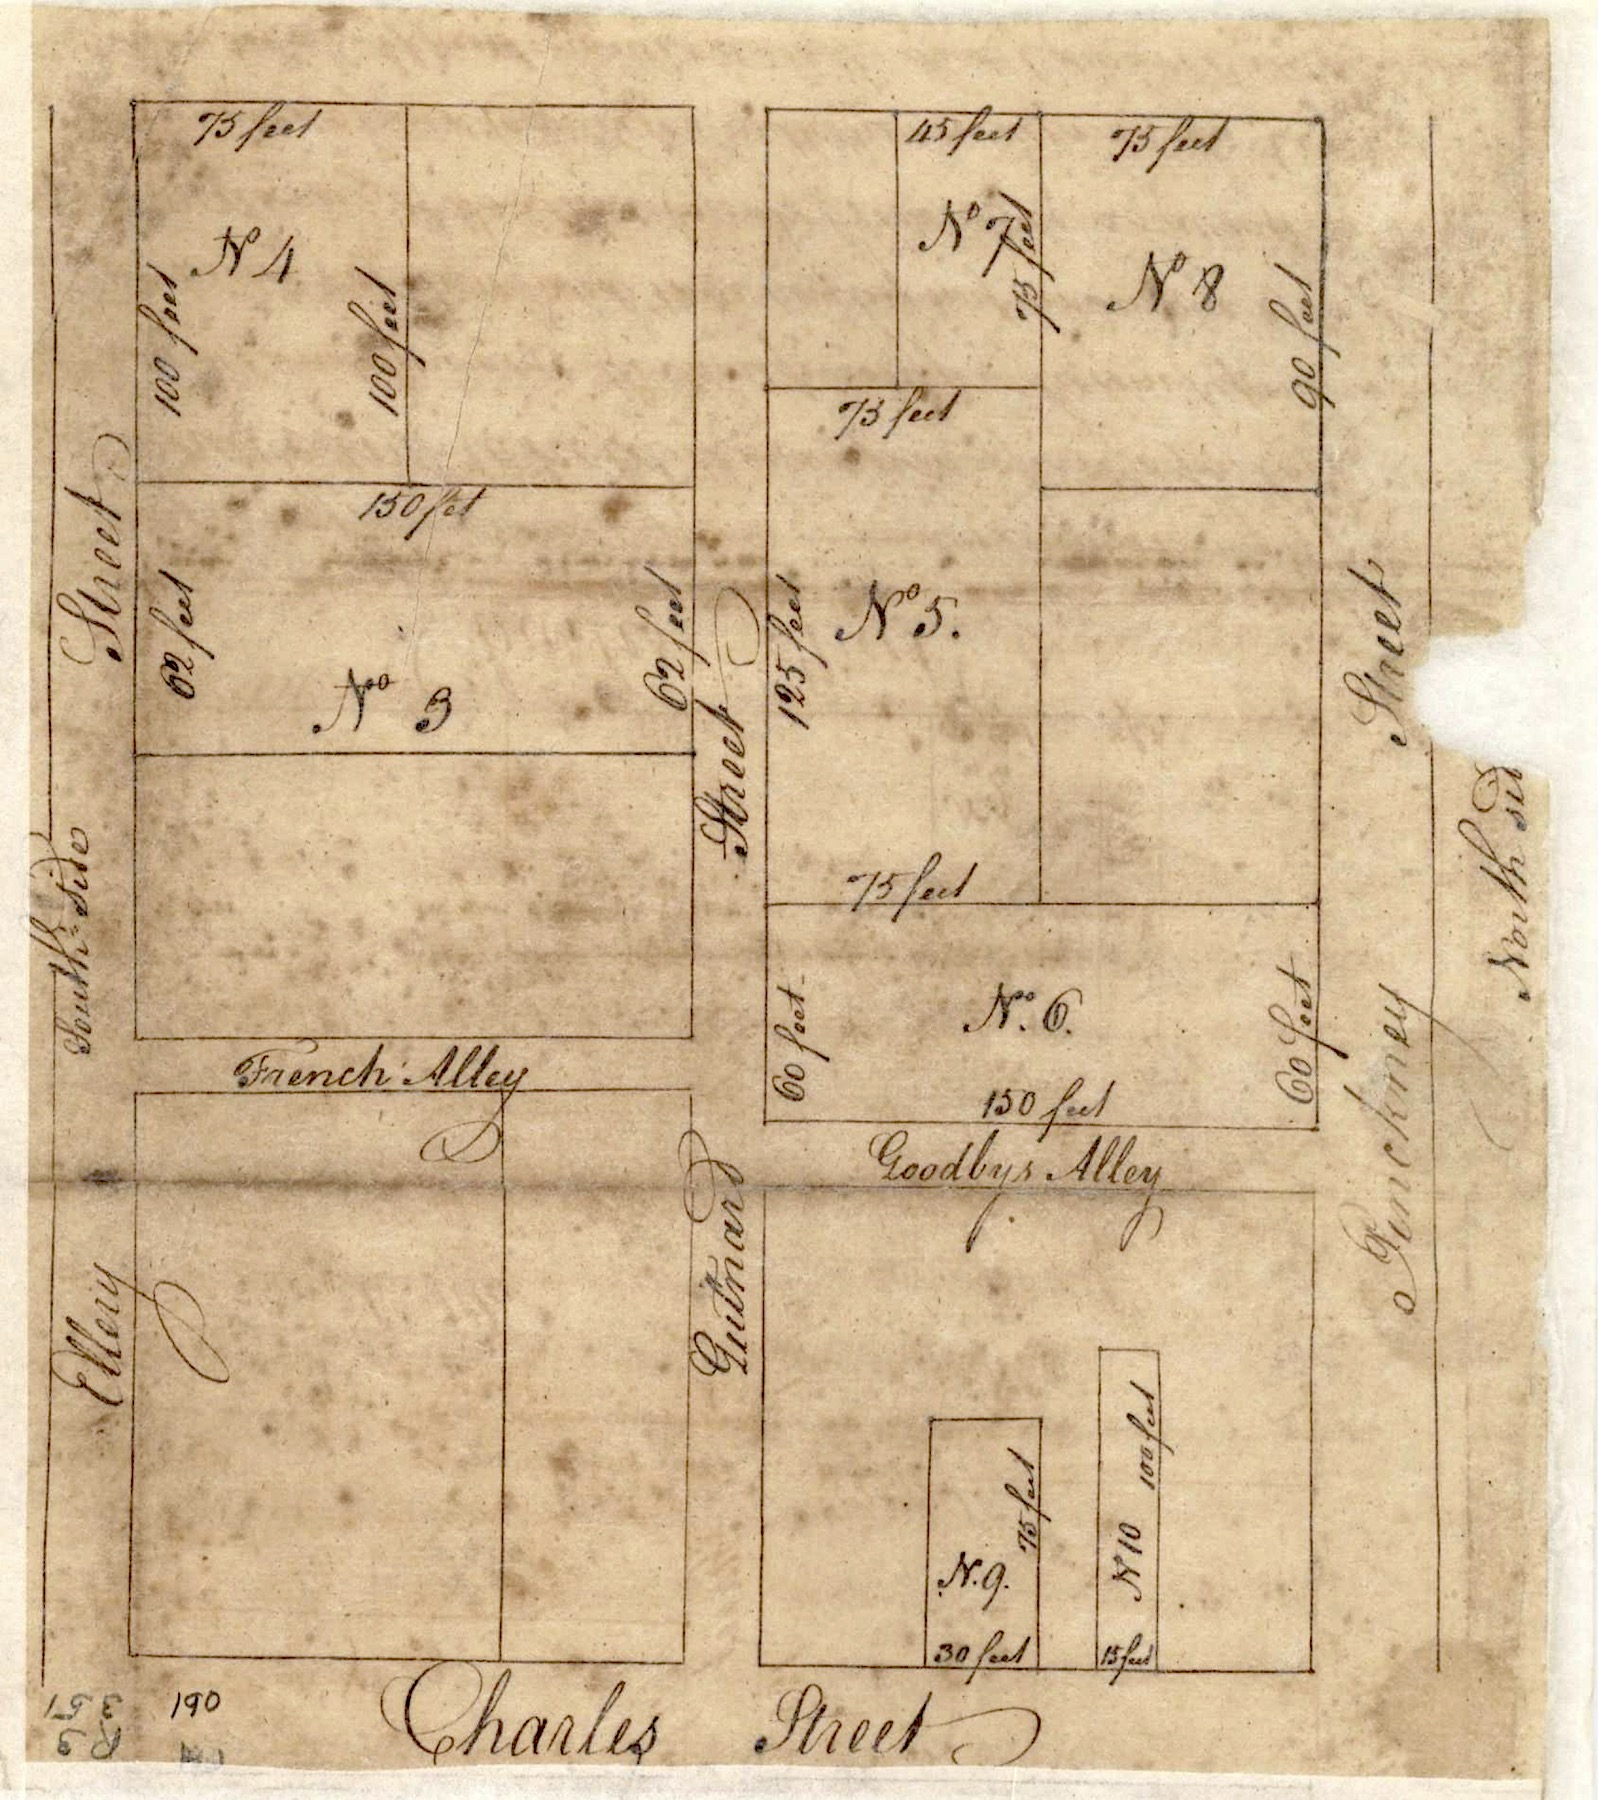 75 feet
45 feet
75 feet
No 4
No 7
75 feet
No 8
100 feet
100 feet
90 feet
75 feet
150 feet
62 feet
62 feet
125 feet
No 5.
No 3
75 feet
No. 6.
60 feet
60 feet
150 feet
French Alley
Goodbys Alley
Ellery Street
South Side
Guinard Street
Pinckney Street
North Sid
N. 9.
75 feet
30 feet
No 10
100 feet
15 feet
Charles Street
190
351
R3